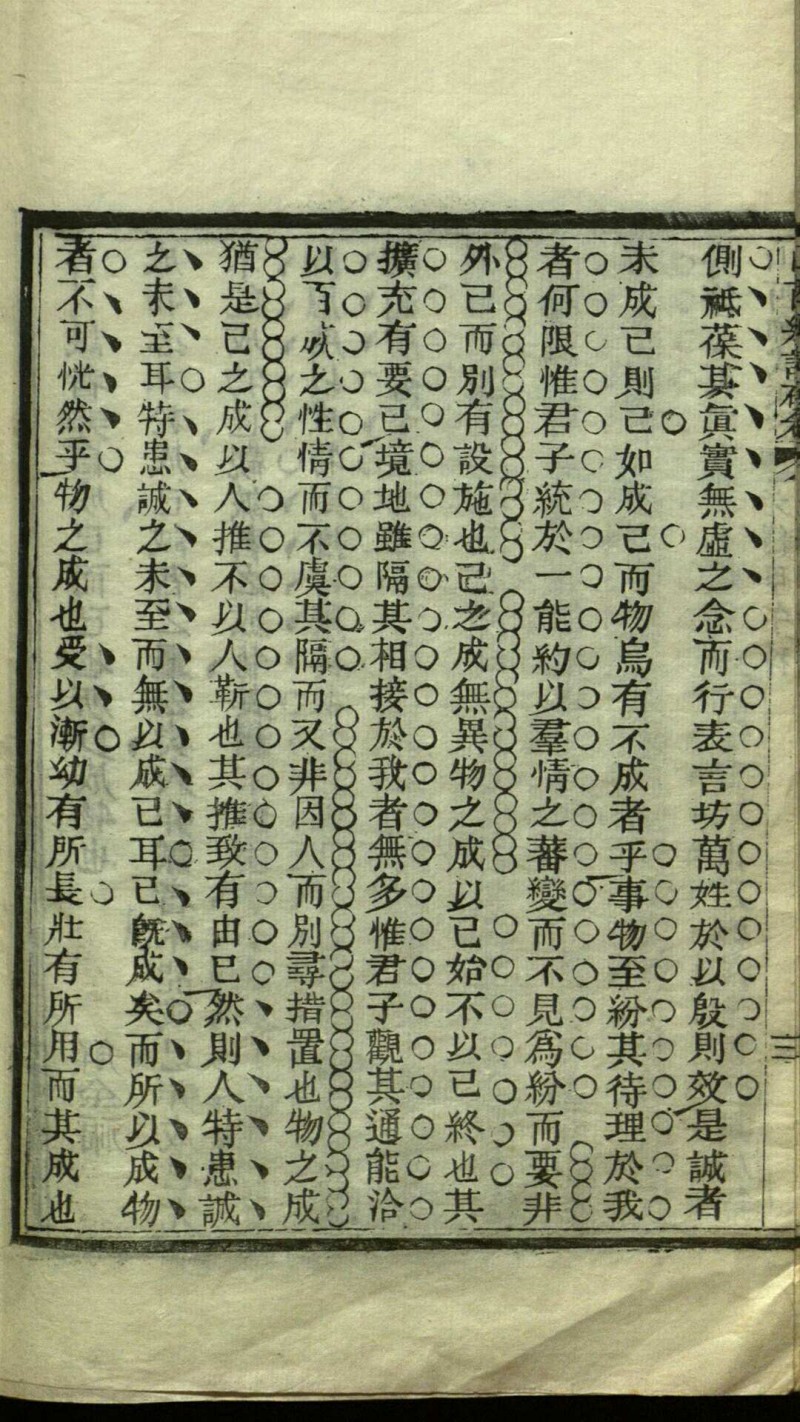 三
側祗葆其真實無虛之念而行表言坊萬姓於以殷則效是誠者
未成己則已如成己而物烏有不成者乎事物至紛其待理於我
者何限惟君子統於一能約以羣情之蕃變而不見為紛而要非
外己而別有設施也己之成無異物之成以己始不以己終也其
擴充有要已境地雖隔其相接於我者無多惟君子觀其通能洽
以之性情而不虞其隔而又非因人而別尋措置也物之成
猶是己之成以人推不以人靳也其推致有由已然則人特患誠
之未至耳特患誠之未至而無以成己耳己既成矣而所以成物
者不可恍然乎物之成也受以漸幼有所長壯有所用而其成也